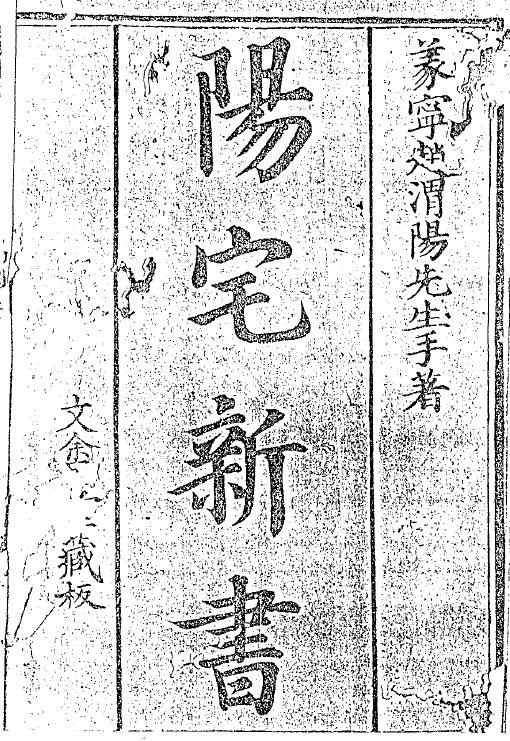 義寧趙渭陽先生手著
陽宅新書
文 藏板